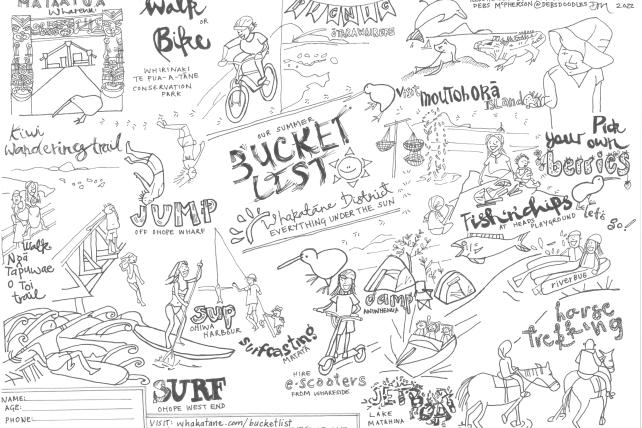 MATAATUA
Wharenui
Walk
OR
Bike
WHIRINAKI
TE PUA-A-TĀNE
CONSERVATION
PARK
PICNIC
DEBS McPHERSON @DEBSDOODLES
2022
Visit MOUTOHORĀ
ISLAND
Kiwi
Wandering trail
OUR SUMMER
BUCKET
LIST
Whakatāne District
EVERYTHING UNDER THE SUN
Pick
your own
berries
JUMP
OFF OHOPE WHARF
Fish'n'chips
AT HEADS PLAYGROUND
Let's Go!
Walk
Ngā
Tapuwae
o Toi
trail
riverbug
SUP
OHIWA
HARBOUR
Surfcasting
MATATA
Camp
ANIWHENUA
horse
trekking
HIRE
e-scooters
FROM WHARESIDE
SURF
OHOPE WEST END
JETBOAT
LAKE
MATAHINA
NAME:
AGE:
PHONE:
VISIT: whakatane.com/bucketlist